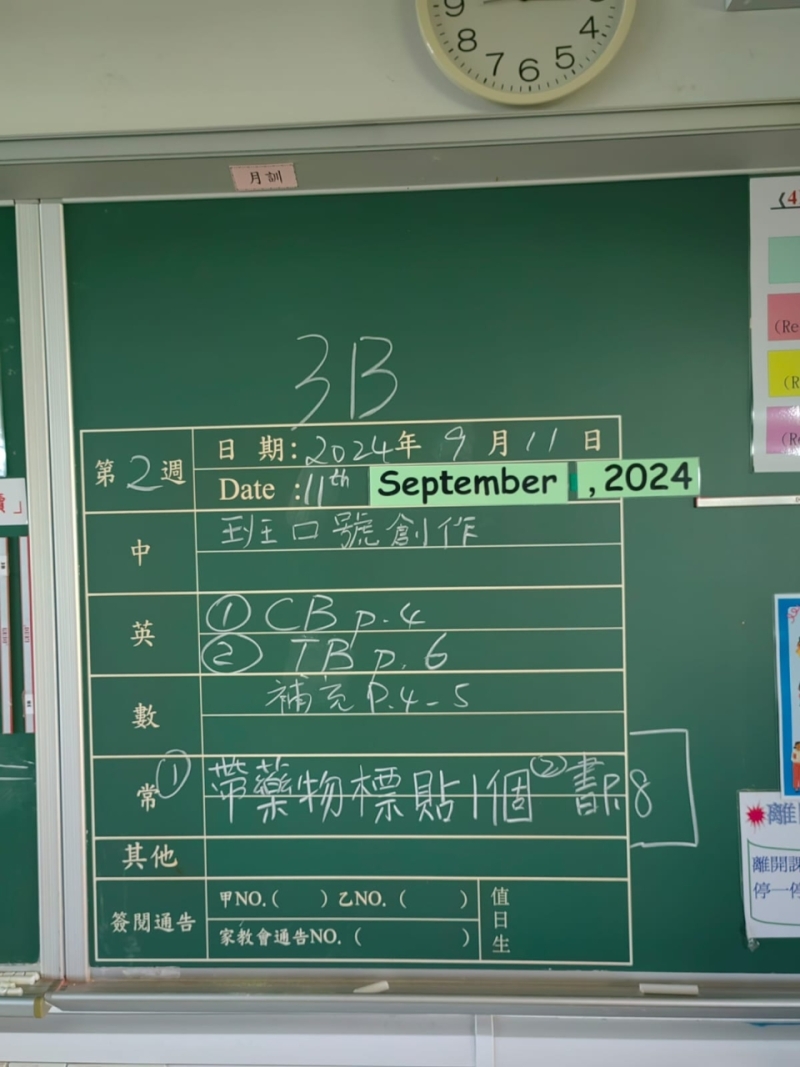 9 8 7 6 5 4
月訓
3B
第2週
日 期：2024年 9 月 11 日
Date :11th September , 2024
中
班口號創作
英
① CB p.4
② TB p.6
數
補充 P.4-5
常
① 帶藥物標貼1個 ② 書P.8
其他
簽閱通告
甲NO.( ) 乙NO. ( )
家教會通告NO. ( )
值日生
《4
(Re
(R
(Re
離
離開課
停一停